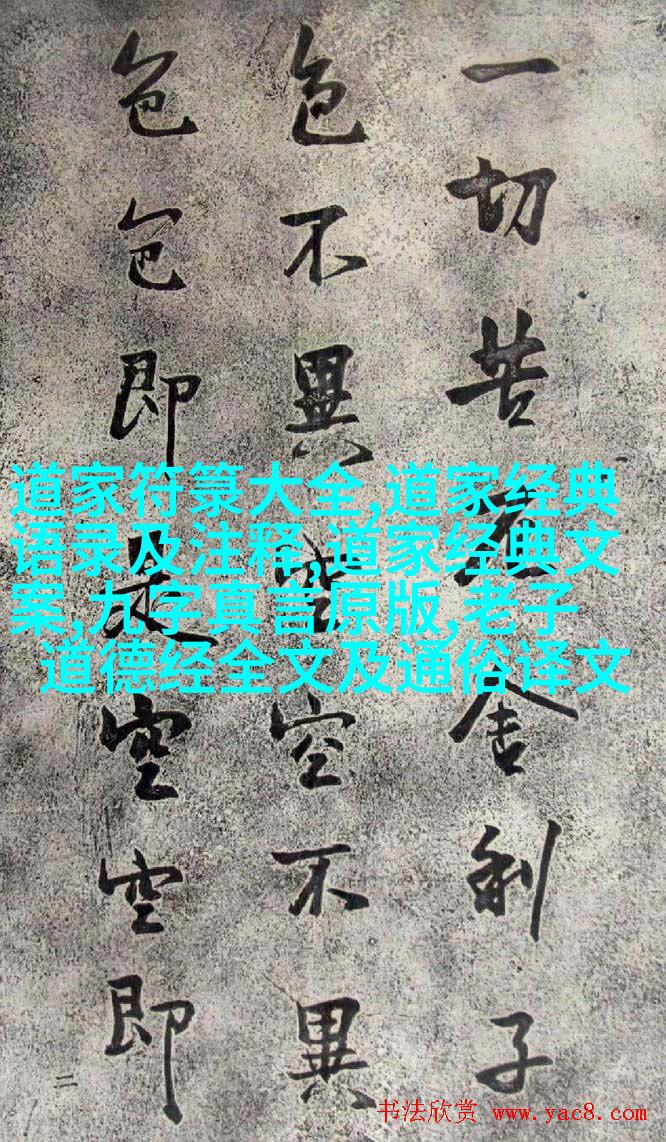 一切苦厄舍利子
色不異空空不異
色色即是空空即
二
道家符箓大全,道家经典
语录及注释,道家经典文
案,九字真言原版,老子
道德经全文及通俗译文
书法欣赏 www.yac8.com